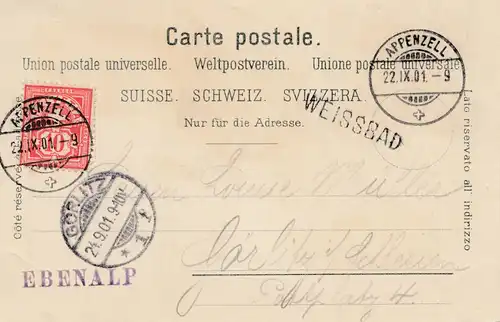 Carte postale.
Union postale universelle. Weltpostverein. Unione postale universale
SUISSE. SCHWEIZ. SVIZZERA.
Nur für die Adresse.
Côté réservé
Lato riservato all indirizzo
APPENZELL
22.IX.01.-9
APPENZELL
22.IX.01.-9
10
WEISSBAD
GÖRLITZ
24.9.01.9-10V.
* 1 r
EBENALP
Louise Müller
Görlitz i/Schlesien